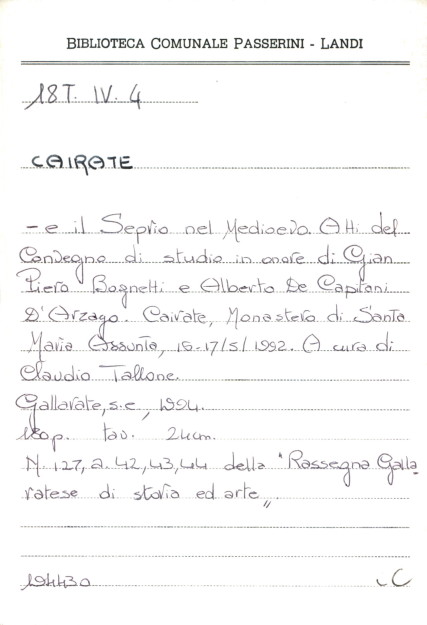 BIBLIOTECA COMUNALE PASSERINI - LANDI
18T. IV. 4
CAIRATE
- e il Seprio nel Medioevo. Atti del
Convegno di studio in onore di Gian
Piero Bognetti e Alberto De Capitani
D'Arzago. Cairate, Monastero di Santa
Maria Assunta, 16-17/5/1992. A cura di
Claudio Tallone.
Gallarate, s.e., 1994.
p. tav. 24cm.
N. 127, a. 42, 43, 44 della "Rassegna Galla
ratese di storia ed arte"
194430
C